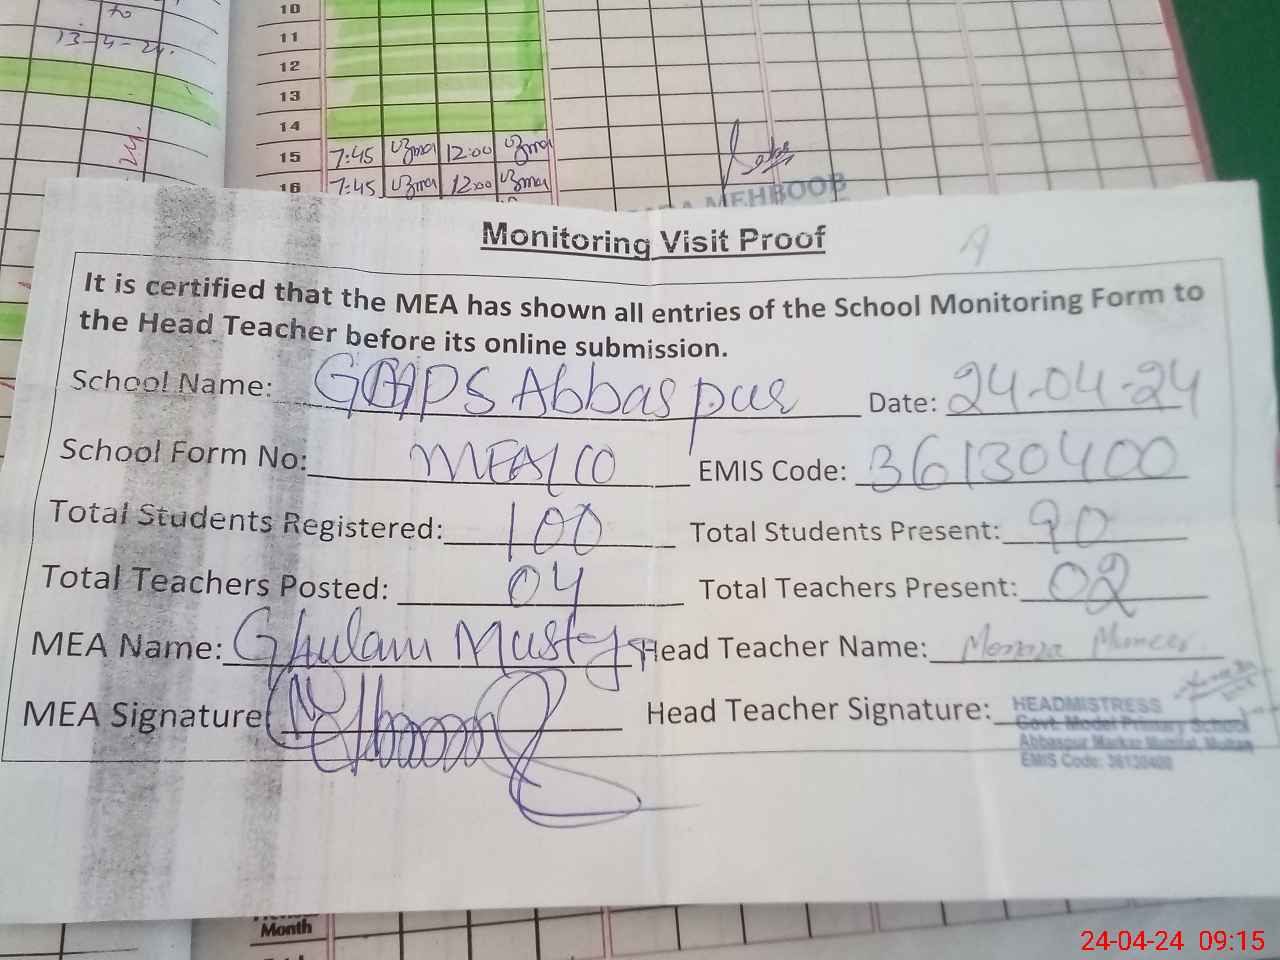 to
13-4-24.
10
11
12
13
14
15 7:45 uzma 12:00 uzma
16 7:45 uzma 12:00 uzma
MEHBOOB
Monitoring Visit Proof
It is certified that the MEA has shown all entries of the School Monitoring Form to
the Head Teacher before its online submission.
School Name: GMPS Abbaspur Date: 24-04-24
School Form No: MEA/10 EMIS Code: 36130400
Total Students Registered: 100 Total Students Present: 90
Total Teachers Posted: 04 Total Teachers Present: 02
MEA Name: Ghulam Mustafa Head Teacher Name: Momna Muneer
MEA Signature: Head Teacher Signature:
HEADMISTRESS
Govt. Model Primary School
Abbaspur Markaz Multan
EMIS Code: 36130400
Month
24-04-24 09:15